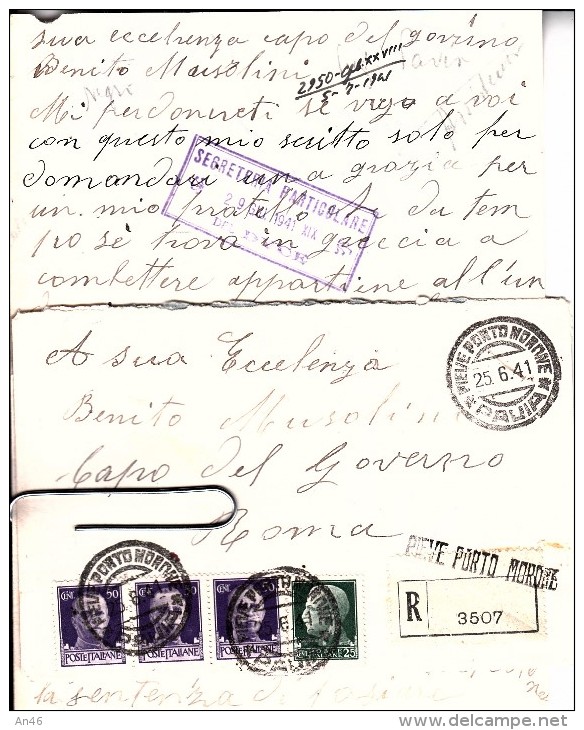 sua eccelrenza capo del governo
Benito Musolini
2950-Gab. XXVIII
5-7-1941
Mi perdonereti se vego a voi
con questo mio scritto solo per
domandari una grazia per
un mio fratello che da tem
po se trova in grecia a
combettere appartiene all'un
SEGRETERIA PARTICOLARE
29 GIU. 1941 XIX
DEL DUCE
A sua Eccelenza
Benito Musolini
Capo del Governo
Roma
PIEVE PORTO MORONE
25.6.41
PAVIA
PIEVE PORTO MORONE
R 3507
CENT. 50 POSTE ITALIANE
50 POSTE ITALIANE
50 POSTE ITALIANE
LIRE 2,55
la sentenza di
An46
www.delcampe.net